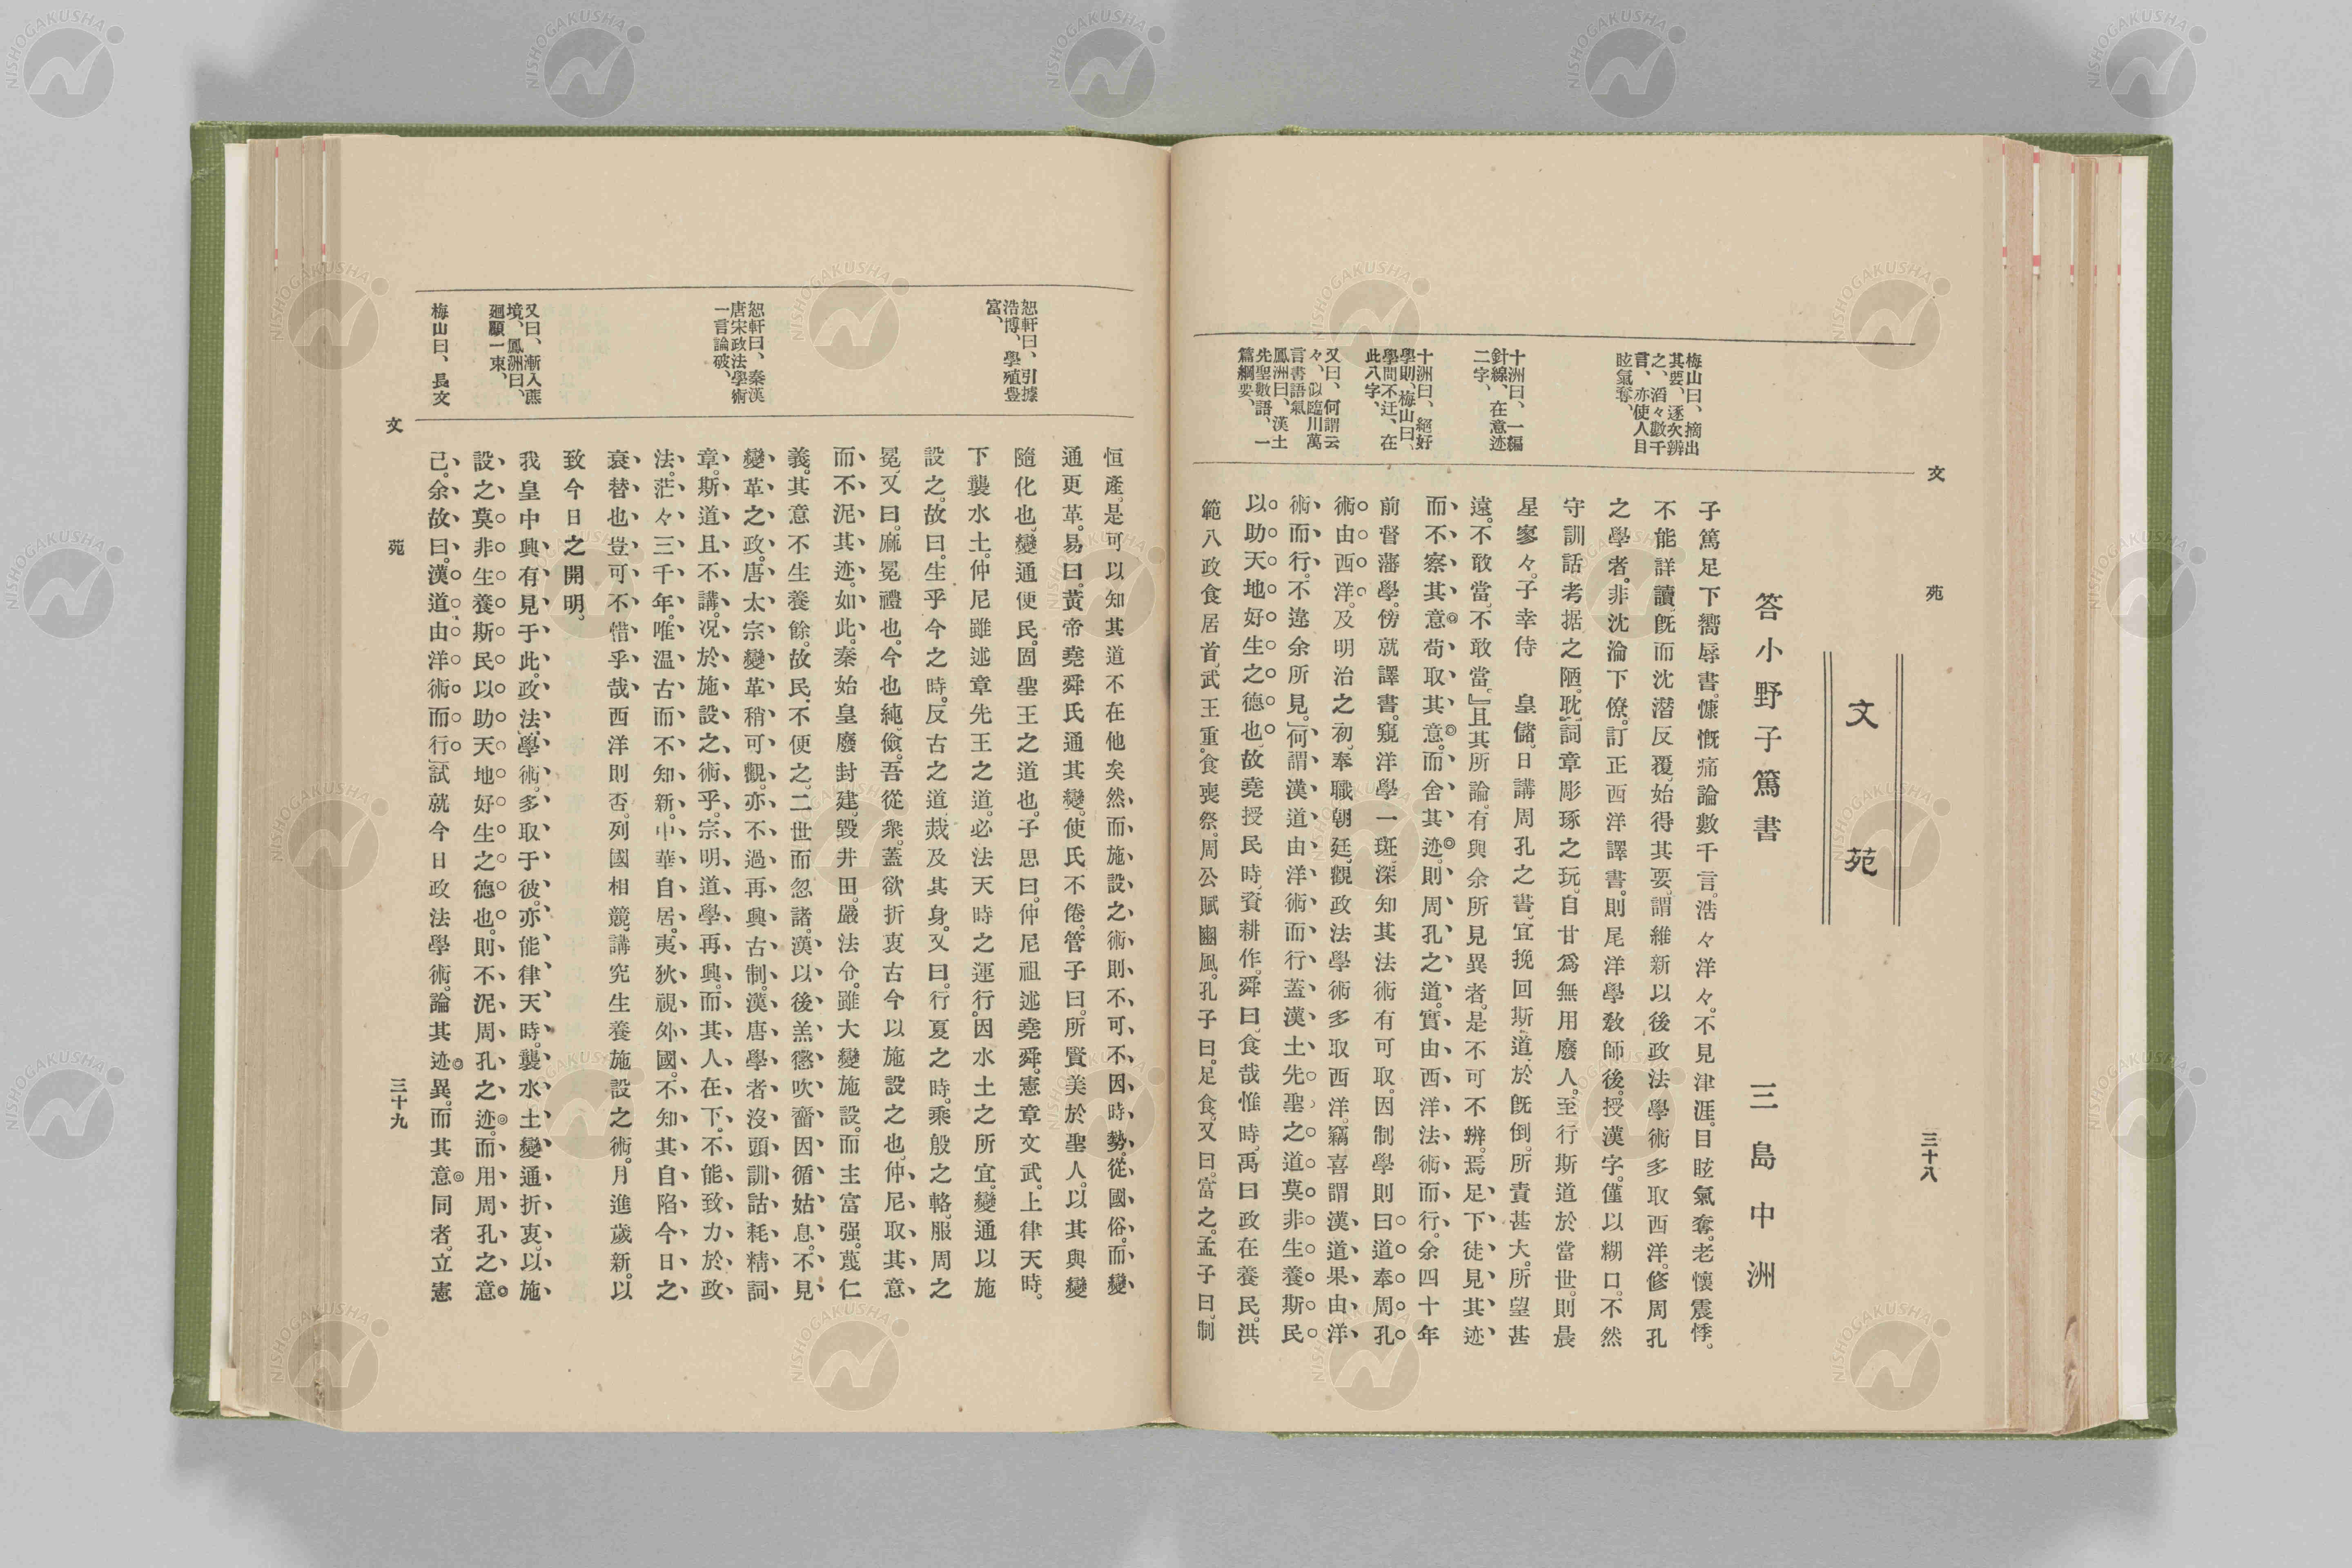 文　苑　三十八
文苑
答小野子篤書　三島中洲
子篤足下嚮辱書。慷慨痛論數千言。浩々洋々。不見津涯。目眩氣奪。老懷震悸。
不能詳讀。既而沈潜反覆。始得其要。謂維新以後政法學術多取西洋。修周孔
之學者。非沈淪下僚。訂正西洋譯書。則尾洋學教師後。授漢字。僅以糊口。不然
守訓詁考据之陋。耽詞章彫琢之玩。自甘爲無用廢人。至行斯道於當世。則晨
星寥々。子幸侍　皇儲。日講周孔之書。宜挽回斯道於既倒。所責甚大。所望甚
遠。不敢當。不敢當。』且其所論。有與余所見異者。是不可不辨焉。足下徒見其迹
而不察其意。苟取其意。而舍其迹。則周孔之道。實由西洋法術而行。余四十年
前督藩學。傍就譯書。窺洋學一斑。深知其法術有可取。因制學則曰。道奉周孔
術由西洋。及明治之初。奉職朝廷。觀政法學術多取西洋。竊喜謂漢道果由洋
術而行。不違余所見。』何謂漢道由洋術而行。蓋漢土先聖之道。莫非生養斯民
以助天地好生之德也。故堯授民時。資耕作。舜曰。食哉惟時。禹曰政在養民。洪
範八政食居首。武王重食喪祭。周公賦豳風。孔子曰。足食。又曰。富之。孟子曰。制
梅山曰、摘出
其要、逐次辨
之、滔々數千
言、亦使人目
眩氣奪、
十洲曰、一編
針線、在意迹
二字、
十洲曰、絕好
學則、梅山曰、
學問不迂、在
此八字、
又曰、何謂云
々、似臨川萬
言書語氣
鳳洲曰、漢土
先聖數語、一
篇綱要、
恒產。是可以知其道不在他矣。然而施設之術。則不可不因時勢。從國俗。而變
通更革。易曰。黃帝堯舜氏通其變。使民不倦。管子曰。所賢美於聖人。以其與變
隨化也。變通便民。固聖王之道也。子思曰。仲尼祖述堯舜。憲章文武。上律天時。
下襲水土。仲尼雖述章先王之道。必法天時之運行。因水土之所宜。變通以施
設之。故曰。生乎今之時。反古之道。烖及其身。又曰。行夏之時。乘殷之輅。服周之
冕。又曰。麻冕禮也。今也純。儉。吾從衆。蓋欲折衷古今以施設之也。仲尼取其意。
而不泥其迹。如此。秦始皇廢封建。毀井田。嚴法令。雖大變施設。而主富强。蔑仁
義。其意不生養餘。故民不便之。二世而忽諸。漢以後羔懲吹韲因循姑息。不見
變革之政。唐太宗變革稍可觀。亦不過再興古制。漢唐學者沒頭訓詁耗精詞
章。斯道且不講。况於施設之術乎。宗明道學再興。而其人在下。不能致力於政
法。茫々三千年。唯溫古而不知新。中華自居。夷狄視外國。不知其自陷今日之
衰替也。豈可不惜乎哉。西洋則否。列國相競。講究生養施設之術。月進歲新。以
致今日之開明。
我皇中興有見于此。政法學術。多取于彼。亦能律天時。襲水土。變通折衷。以施
設之。莫非生養斯民以助天地好生之德也。則不泥周孔之迹。而用周孔之意
己。余故曰。漢道由洋術而行。』試就今日政法學術。論其迹異。而其意同者。立憲
恕軒曰、引據
浩博、學殖豊
富、
恕軒曰、秦漢
唐宋政法學術
一言論破、
又曰、漸入蔗
境、鳳洲曰、
廻顧一束、
梅山曰、長文
文　苑　三十九